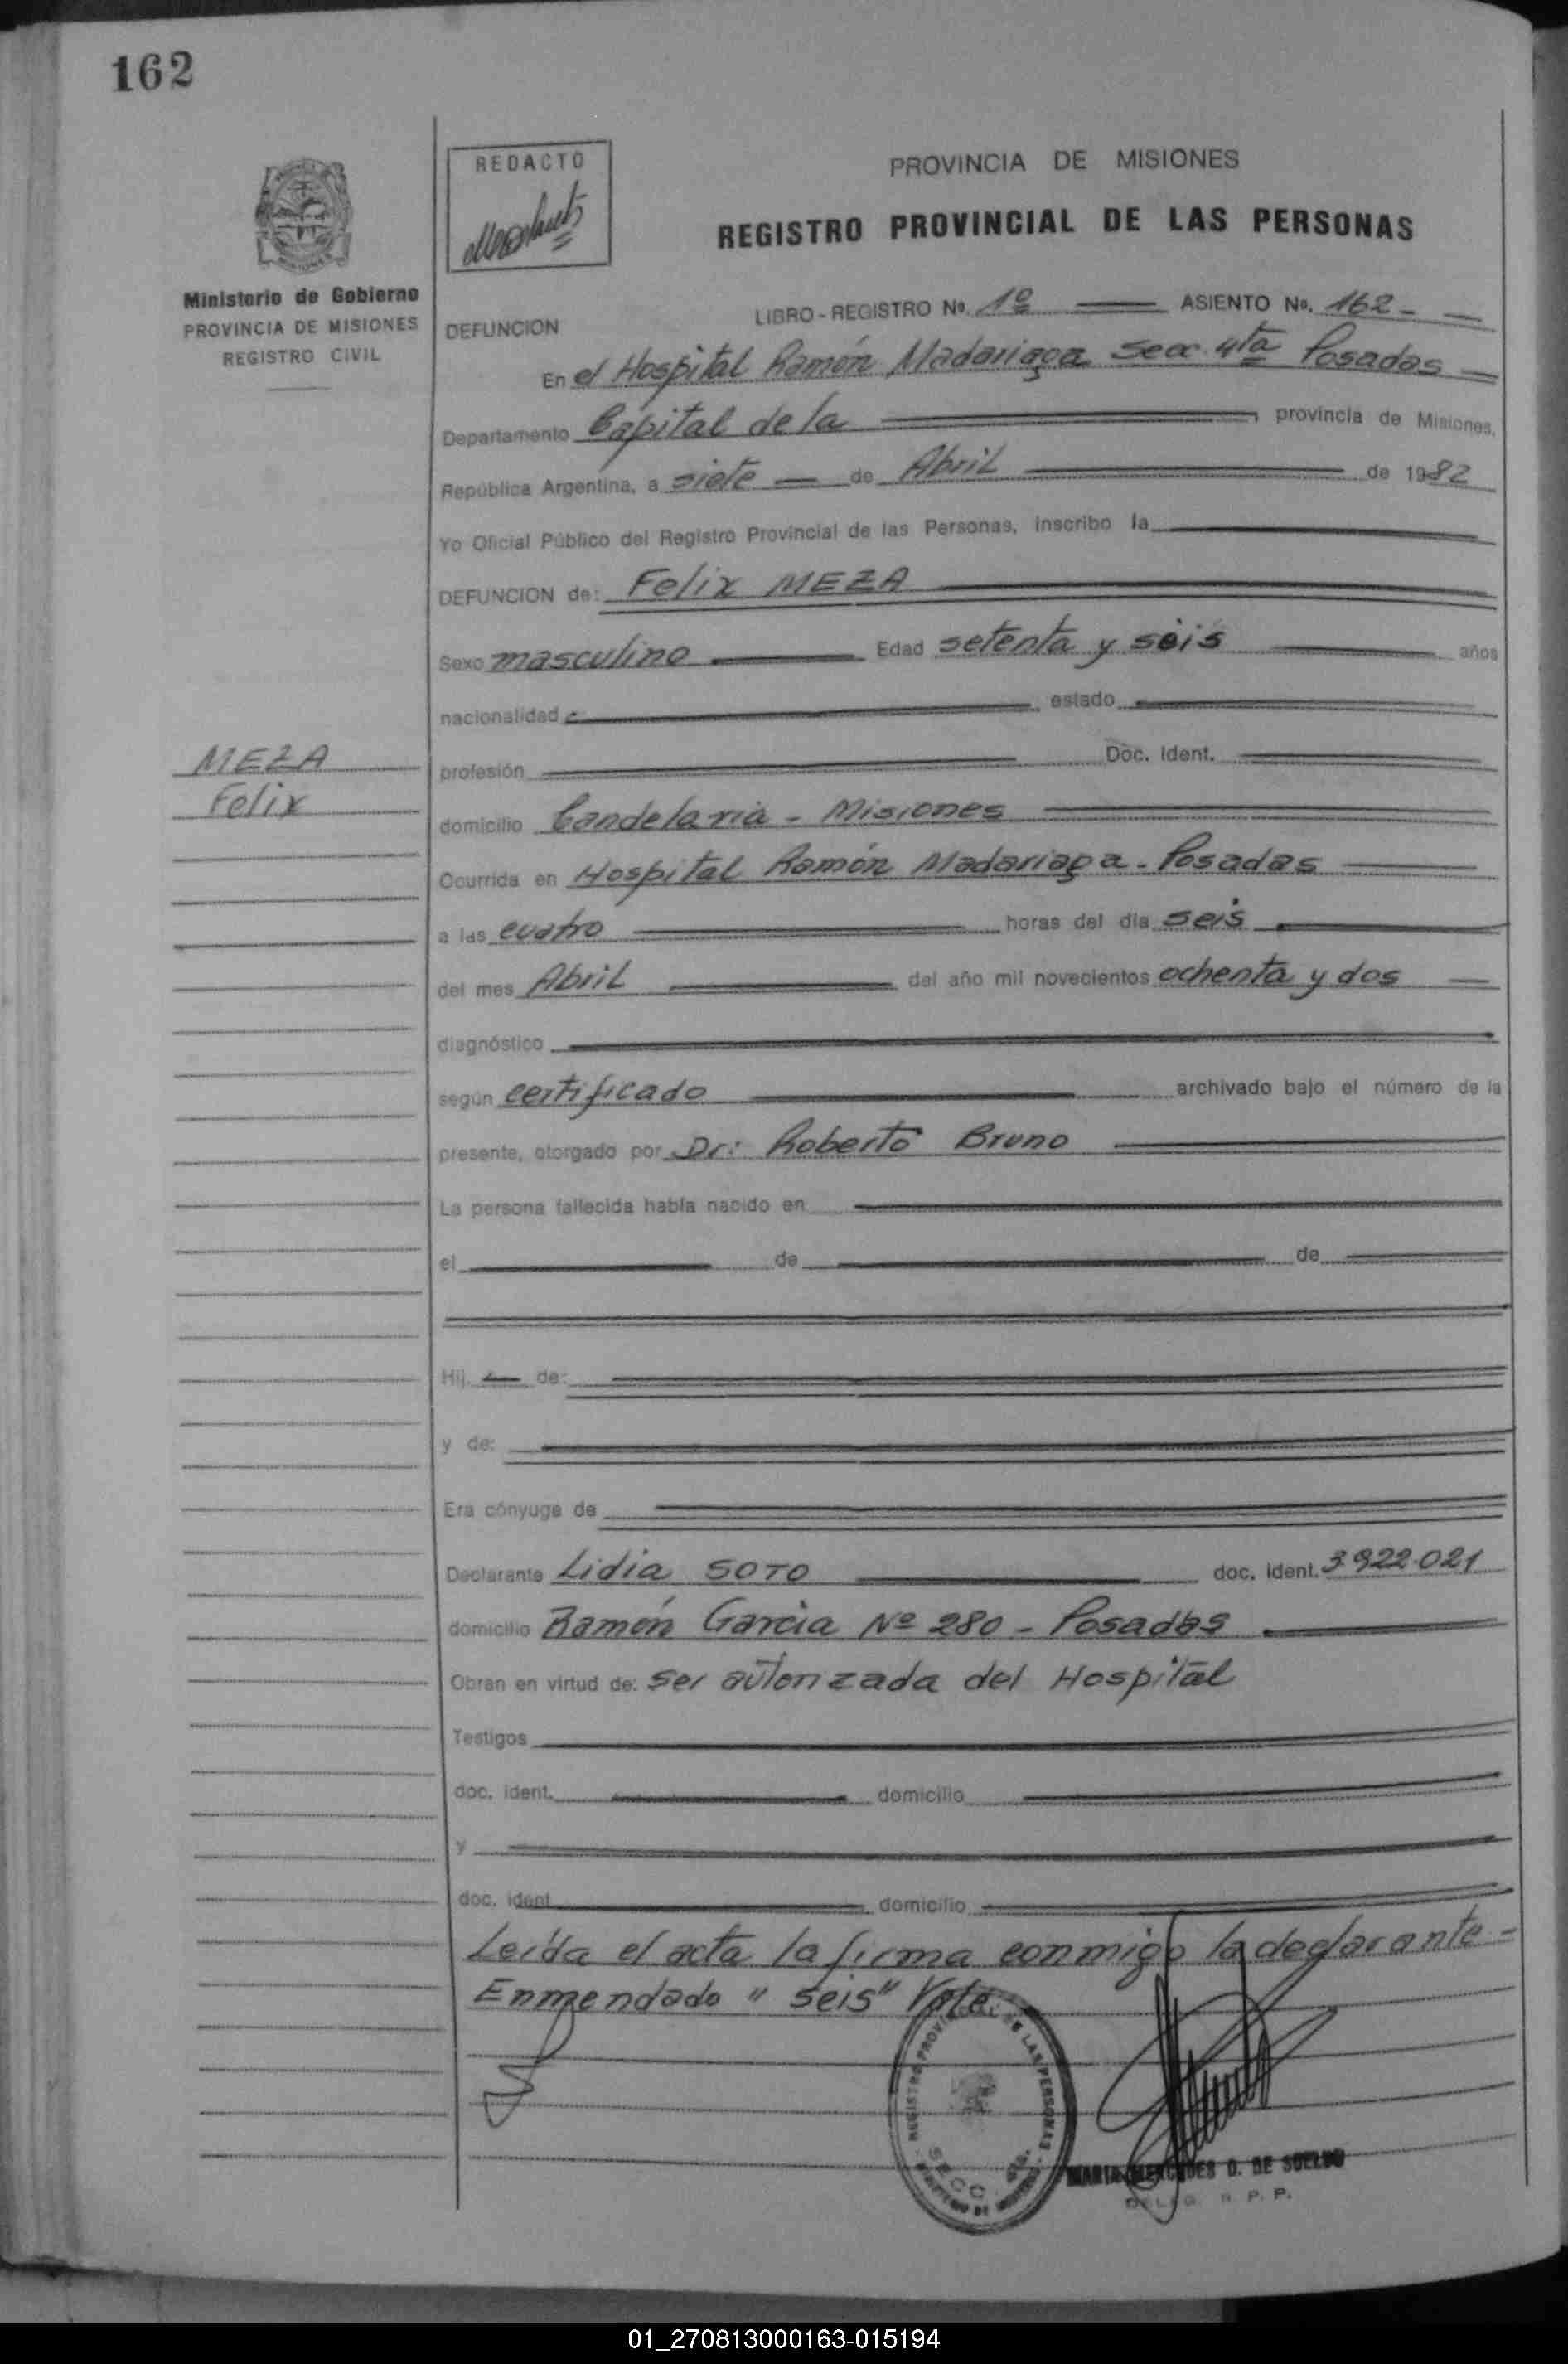 162
REDACTO
PROVINCIA DE MISIONES
REGISTRO PROVINCIAL DE LAS PERSONAS
Ministerio de Gobierno
PROVINCIA DE MISIONES
REGISTRO CIVIL
LIBRO - REGISTRO Nº. 1º ASIENTO Nº. 162 -
DEFUNCION
En el Hospital Ramón Madariaga Secc. 4ta Posadas
Departamento Capital de la , provincia de Misiones,
República Argentina, a siete de Abril de 1982
Yo Oficial Público del Registro Provincial de las Personas, inscribo la
DEFUNCION de: Felix MEZA
Sexo masculino Edad setenta y seis años
nacionalidad estado
MEZA
Felix
profesión Doc. Ident.
domicilio Candelaria - Misiones
Ocurrida en Hospital Ramón Madariaga - Posadas
a las cuatro horas del día seis
del mes Abril del año mil novecientos ochenta y dos
diagnóstico
según certificado archivado bajo el número de la
presente, otorgado por Dr: Roberto Bruno
La persona fallecida había nacido en
el de de
Hij de:
y de:
Era cónyuge de
Declarante Lidia SOTO doc. ident. 3.922.021
domicilio Ramón Garcia Nº 280 - Posadas
Obran en virtud de: ser autorizada del Hospital
Testigos
doc. ident. domicilio
y
doc. ident. domicilio
Leída el acta la firma conmigo la declarante -
Enmendado "seis" Vale
REGISTRO PROVINCIAL DE LAS PERSONAS
SECC. 4ta.
MARIA MERCEDES D. DE
DELEG. R. P. P.
01_270813000163-015194